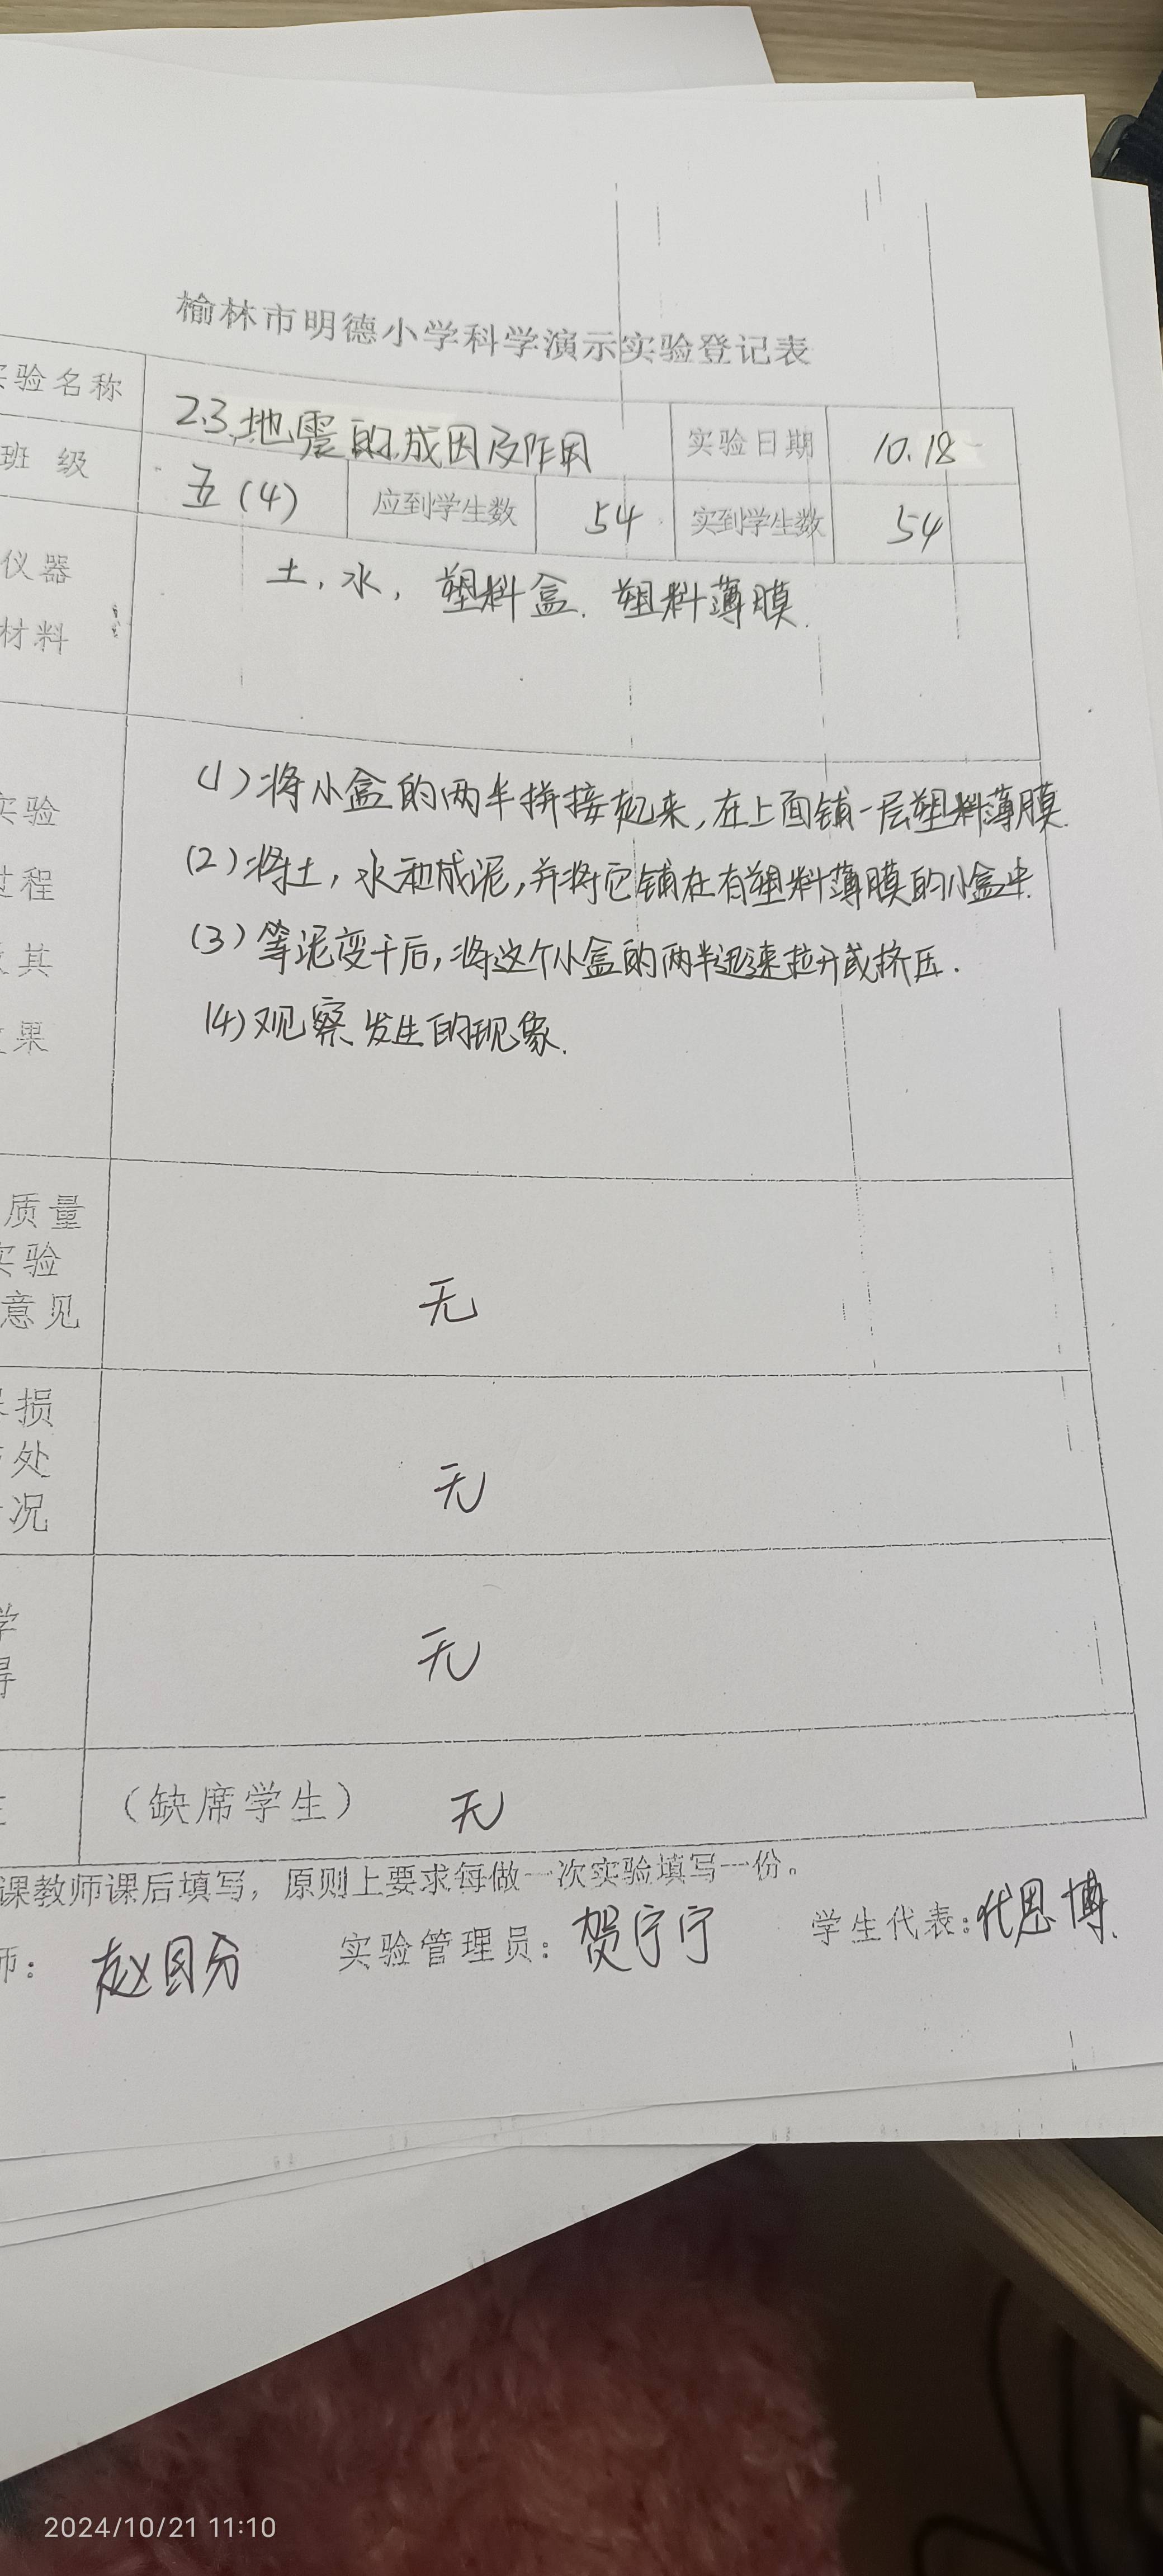 榆林市明德小学科学演示实验登记表
实验名称 2.3.地震的成因及作用 实验日期 10.18
班 级 五(4) 应到学生数 54 实到学生数 54
仪器
材料
土,水,塑料盒.塑料薄膜.
实验
过程
及其
结果
(1)将小盒的两半拼接起来,在上面铺一层塑料薄膜.
(2)将土,水和成泥,并将它铺在有塑料薄膜的小盒中.
(3)等泥变干后,将这个小盒的两半迅速拉开或挤压.
(4)观察发生的现象.
质量
实验
意见
无
损
处
况
无
学
得
无
(缺席学生) 无
课教师课后填写,原则上要求每做一次实验填写一份。
师: 实验管理员:贺宁宁 学生代表:代思博.
2024/10/21 11:10